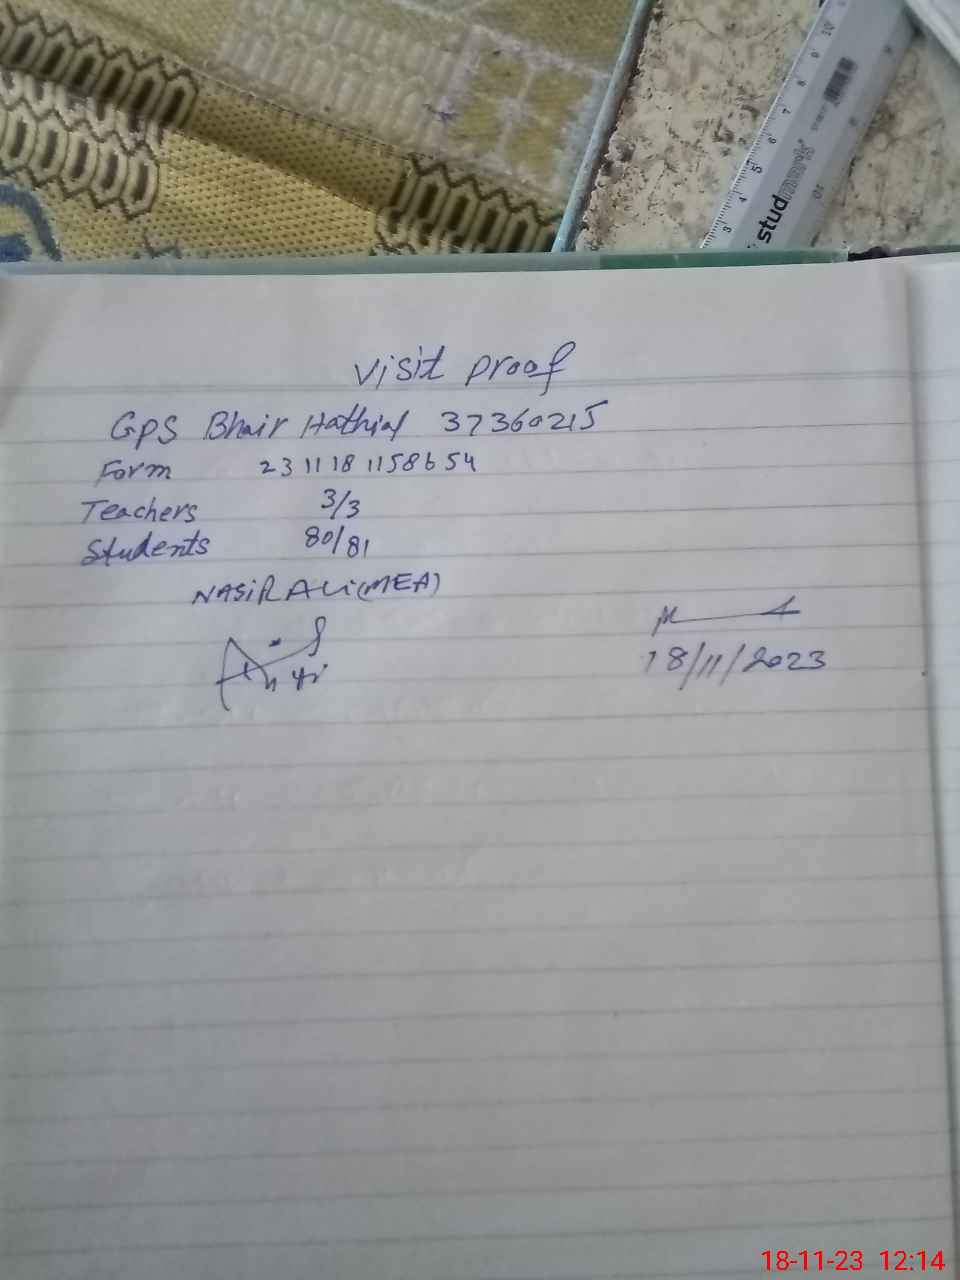 studmark
visit proof
GPS Bhair Hathial 37360215
Form 231118 1158654
Teachers 3/3
Students 80/81
NASiR ALi (MEA)
18/11/2023
18-11-23 12:14